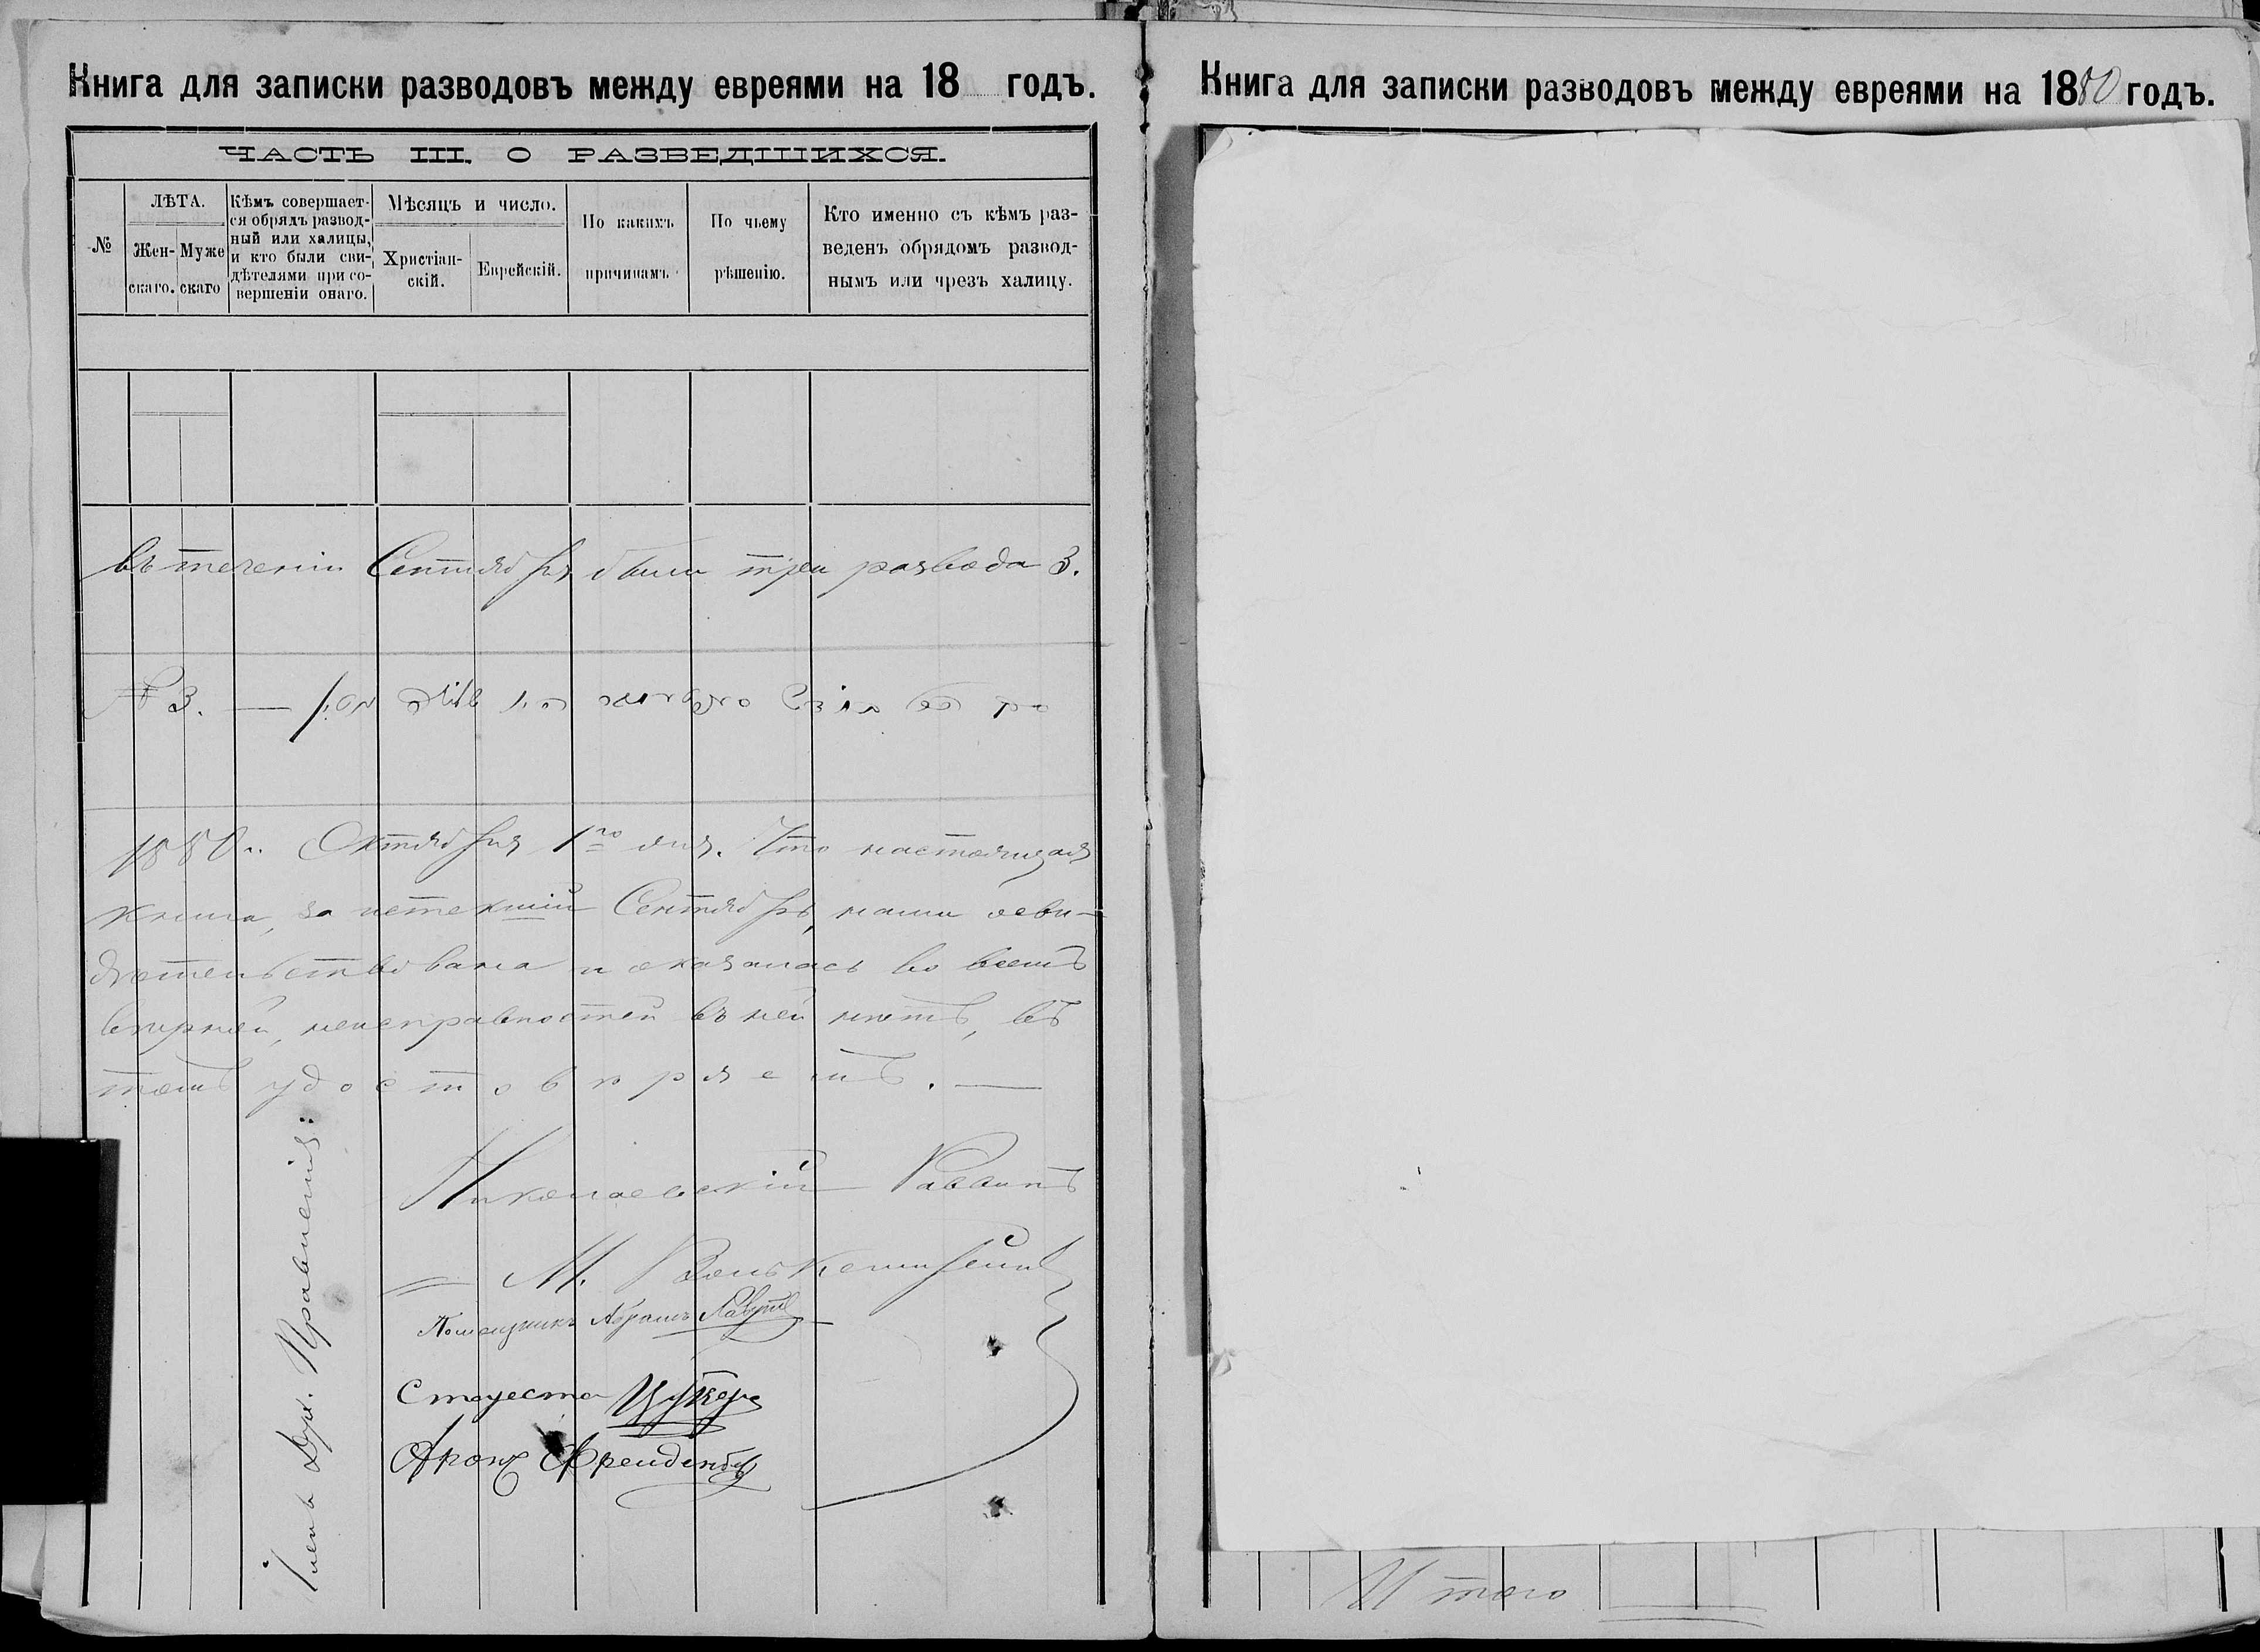 Книга для записки разводовъ между евреями на 18 годъ.
ЧАСТЬ III. О РАЗВЕДШИХСЯ.
№
ЛѢТА.
Жен-
скаго.
Муже
скаго
Кѣмъ совершает-
ся обрядъ развод-
ный или халицы,
и кто были сви-
дѣтелями при со-
вершеніи онаго.
Мѣсяцъ и число.
Христіан-
скій.
Еврейскій.
По какимъ
причинамъ
По чьему
рѣшенію.
Кто именно съ кѣмъ раз-
веденъ обрядомъ развод-
нымъ или чрезъ халицу.
Въ теченіи Сентября были три развода 3.
№ 3. —
1880 г. Октября 1го дня. Что настоящая
книга, за истекшій Сентябрь, нами осви-
дѣтельствована и оказалась во всемъ
вѣрной, неисправностей въ ней нѣтъ, въ
томъ удостовѣряемъ. —
Николаевскій Раввинъ
М.
Помощникъ Абрамъ
Староста Цукеръ
Аронъ
Члены Дух. Правленія:
Книга для записки разводовъ между евреями на 1880 годъ.
Итого